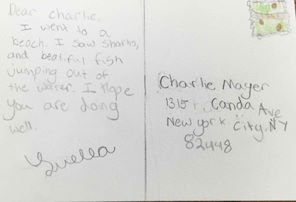 Dear charlie.
I went to a
beach. I saw sharks,
and beatiful fish
jumping out of
the water. I Hope
you are doing
well.
Luella
Charlie Mayer
1315 Canda Ave
New york City, NY
82448